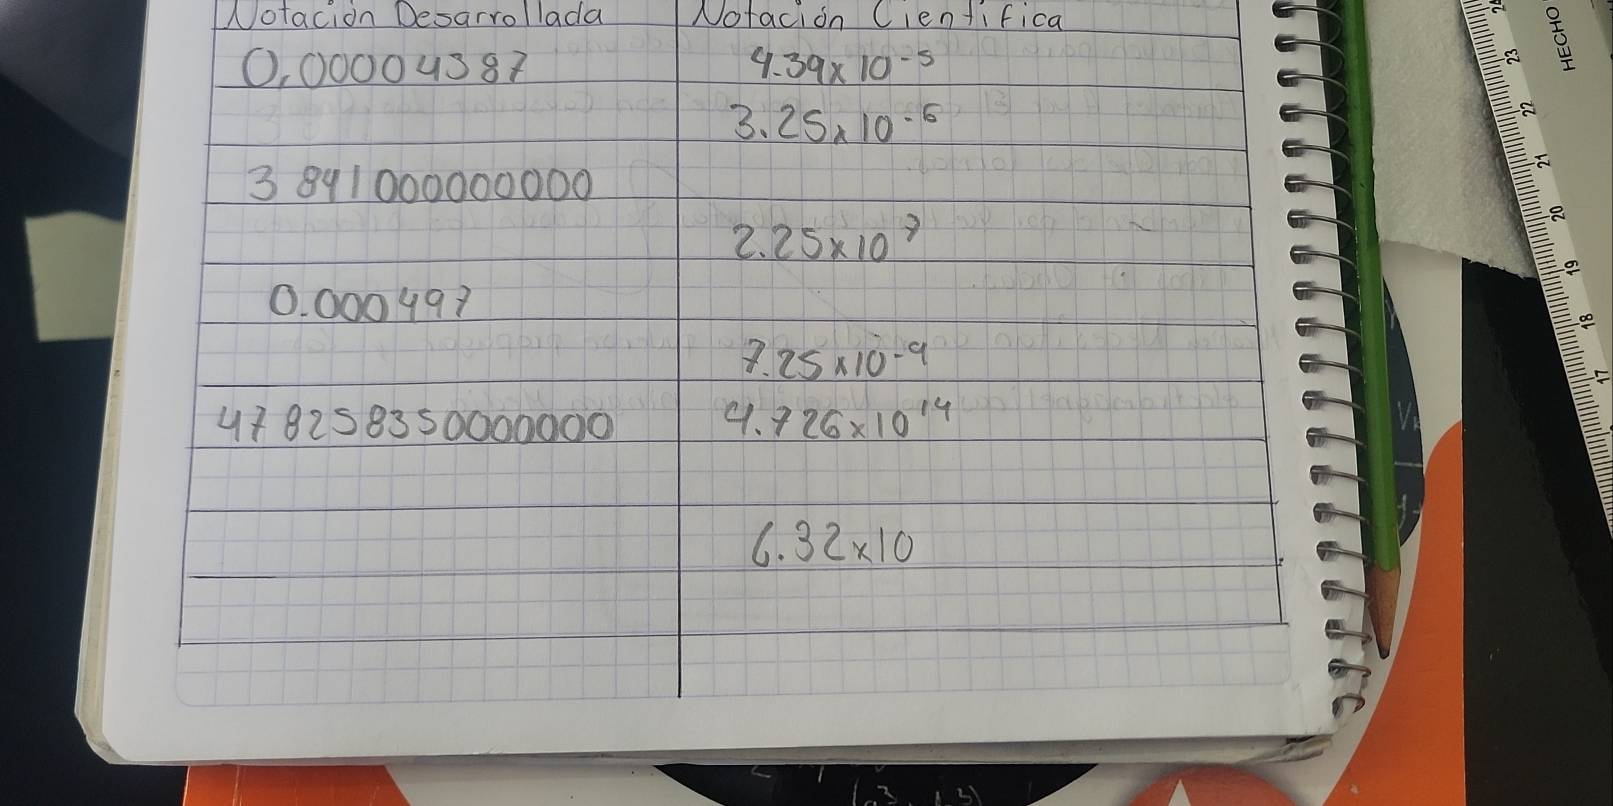 Notación Desarrollada Notación Cientifica
0,00004387 4.39x10-5
3.25x10-6
3 841000000000
2.25x10 7
0.000497
7.25x10-9
478258350000000 4.726x10 14
6.32x10
HECHO
24
23
22
21
20
19
18
17